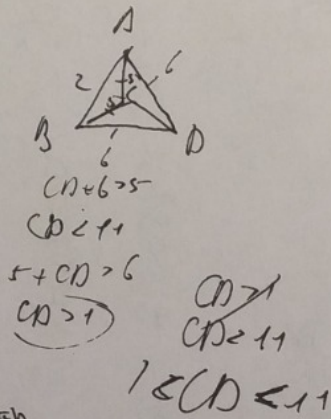 A
2
5
6
B
D
6
CD+6>5
CD<11
5+CD>6
CD>1
CD>1
CD<11
1<CD<11